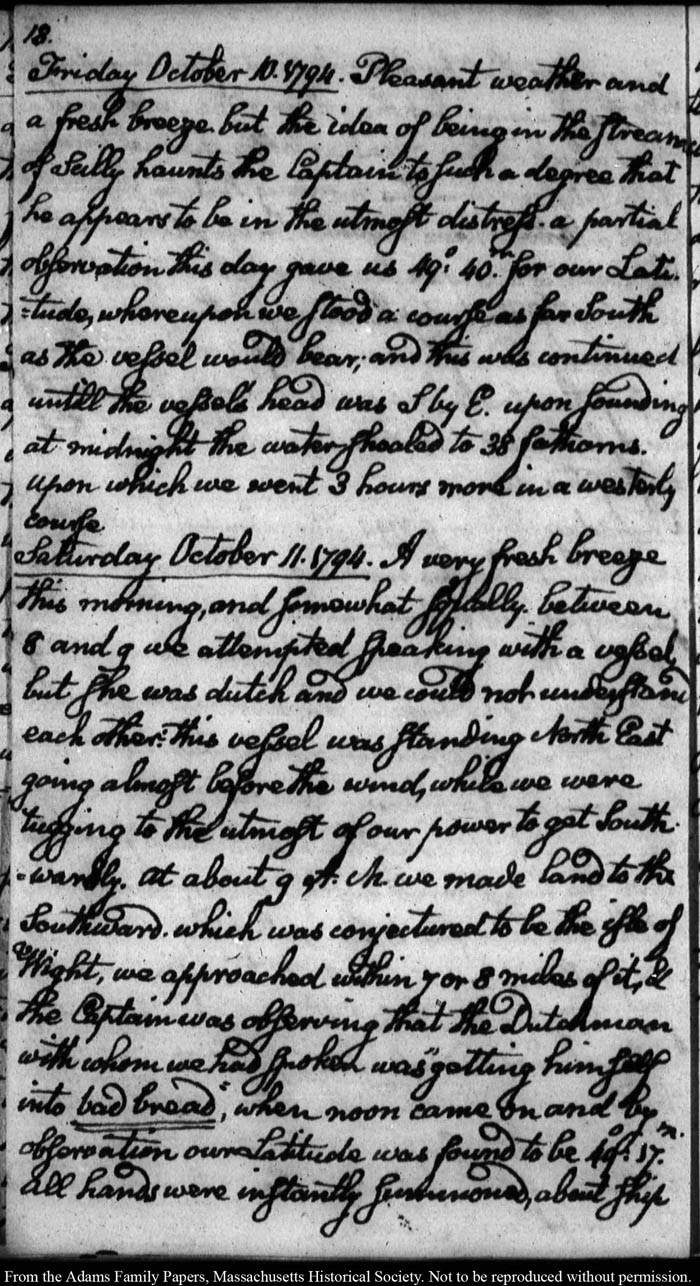 18.
Friday October 10. 1794. Pleasant weather and
a fresh breeze. but the idea of being in the stream
of Scilly haunts the Captain to such a degree that
he appears to be in the utmost distress. a partial
observation this day gave us 49°: 40.m for our Lati-
-tude, whereupon we stood a course as far South
as the vessel would bear; and this was continued
untill the vessel's head was S by E. upon sounding
at midnight the water shoaled to 38 fathoms.
upon which we went 3 hours more in a westerly
course
Saturday October 11. 1794. A very fresh breeze
this morning, and somewhat squally. between
8 and 9 we attempted speaking with a vessel,
but she was dutch and we could not understand
each other: this vessel was standing North East
going almost before the wind, while we were
tugging to the utmost of our power to get South-
-wardly. at about 9 A. M. we made land to the
Southward. which was conjectured to be the isle of
Wight, we approached within 7 or 8 miles of it, &
the Captain was observing that the Dutchman
with whom we had spoken was "getting himself
into bad bread", when noon came on and by
observation our Latitude was found to be 49°: 17.m
all hands were instantly summoned, about ship
From the Adams Family Papers, Massachusetts Historical Society. Not to be reproduced without permission.